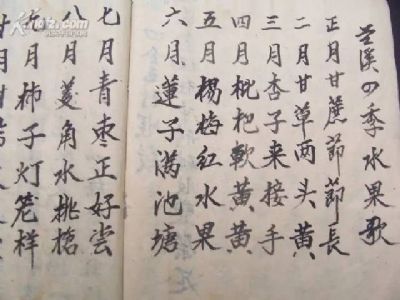 溪四季水果歌
正月甘蔗節節長
二月甘草两头黄
三月杏子来接手
四月枇杷軟黄黄
五月楊梅红水果
六月蓮子满池塘
七月青枣正好尝
八月菱角水
九月柿子灯笼样